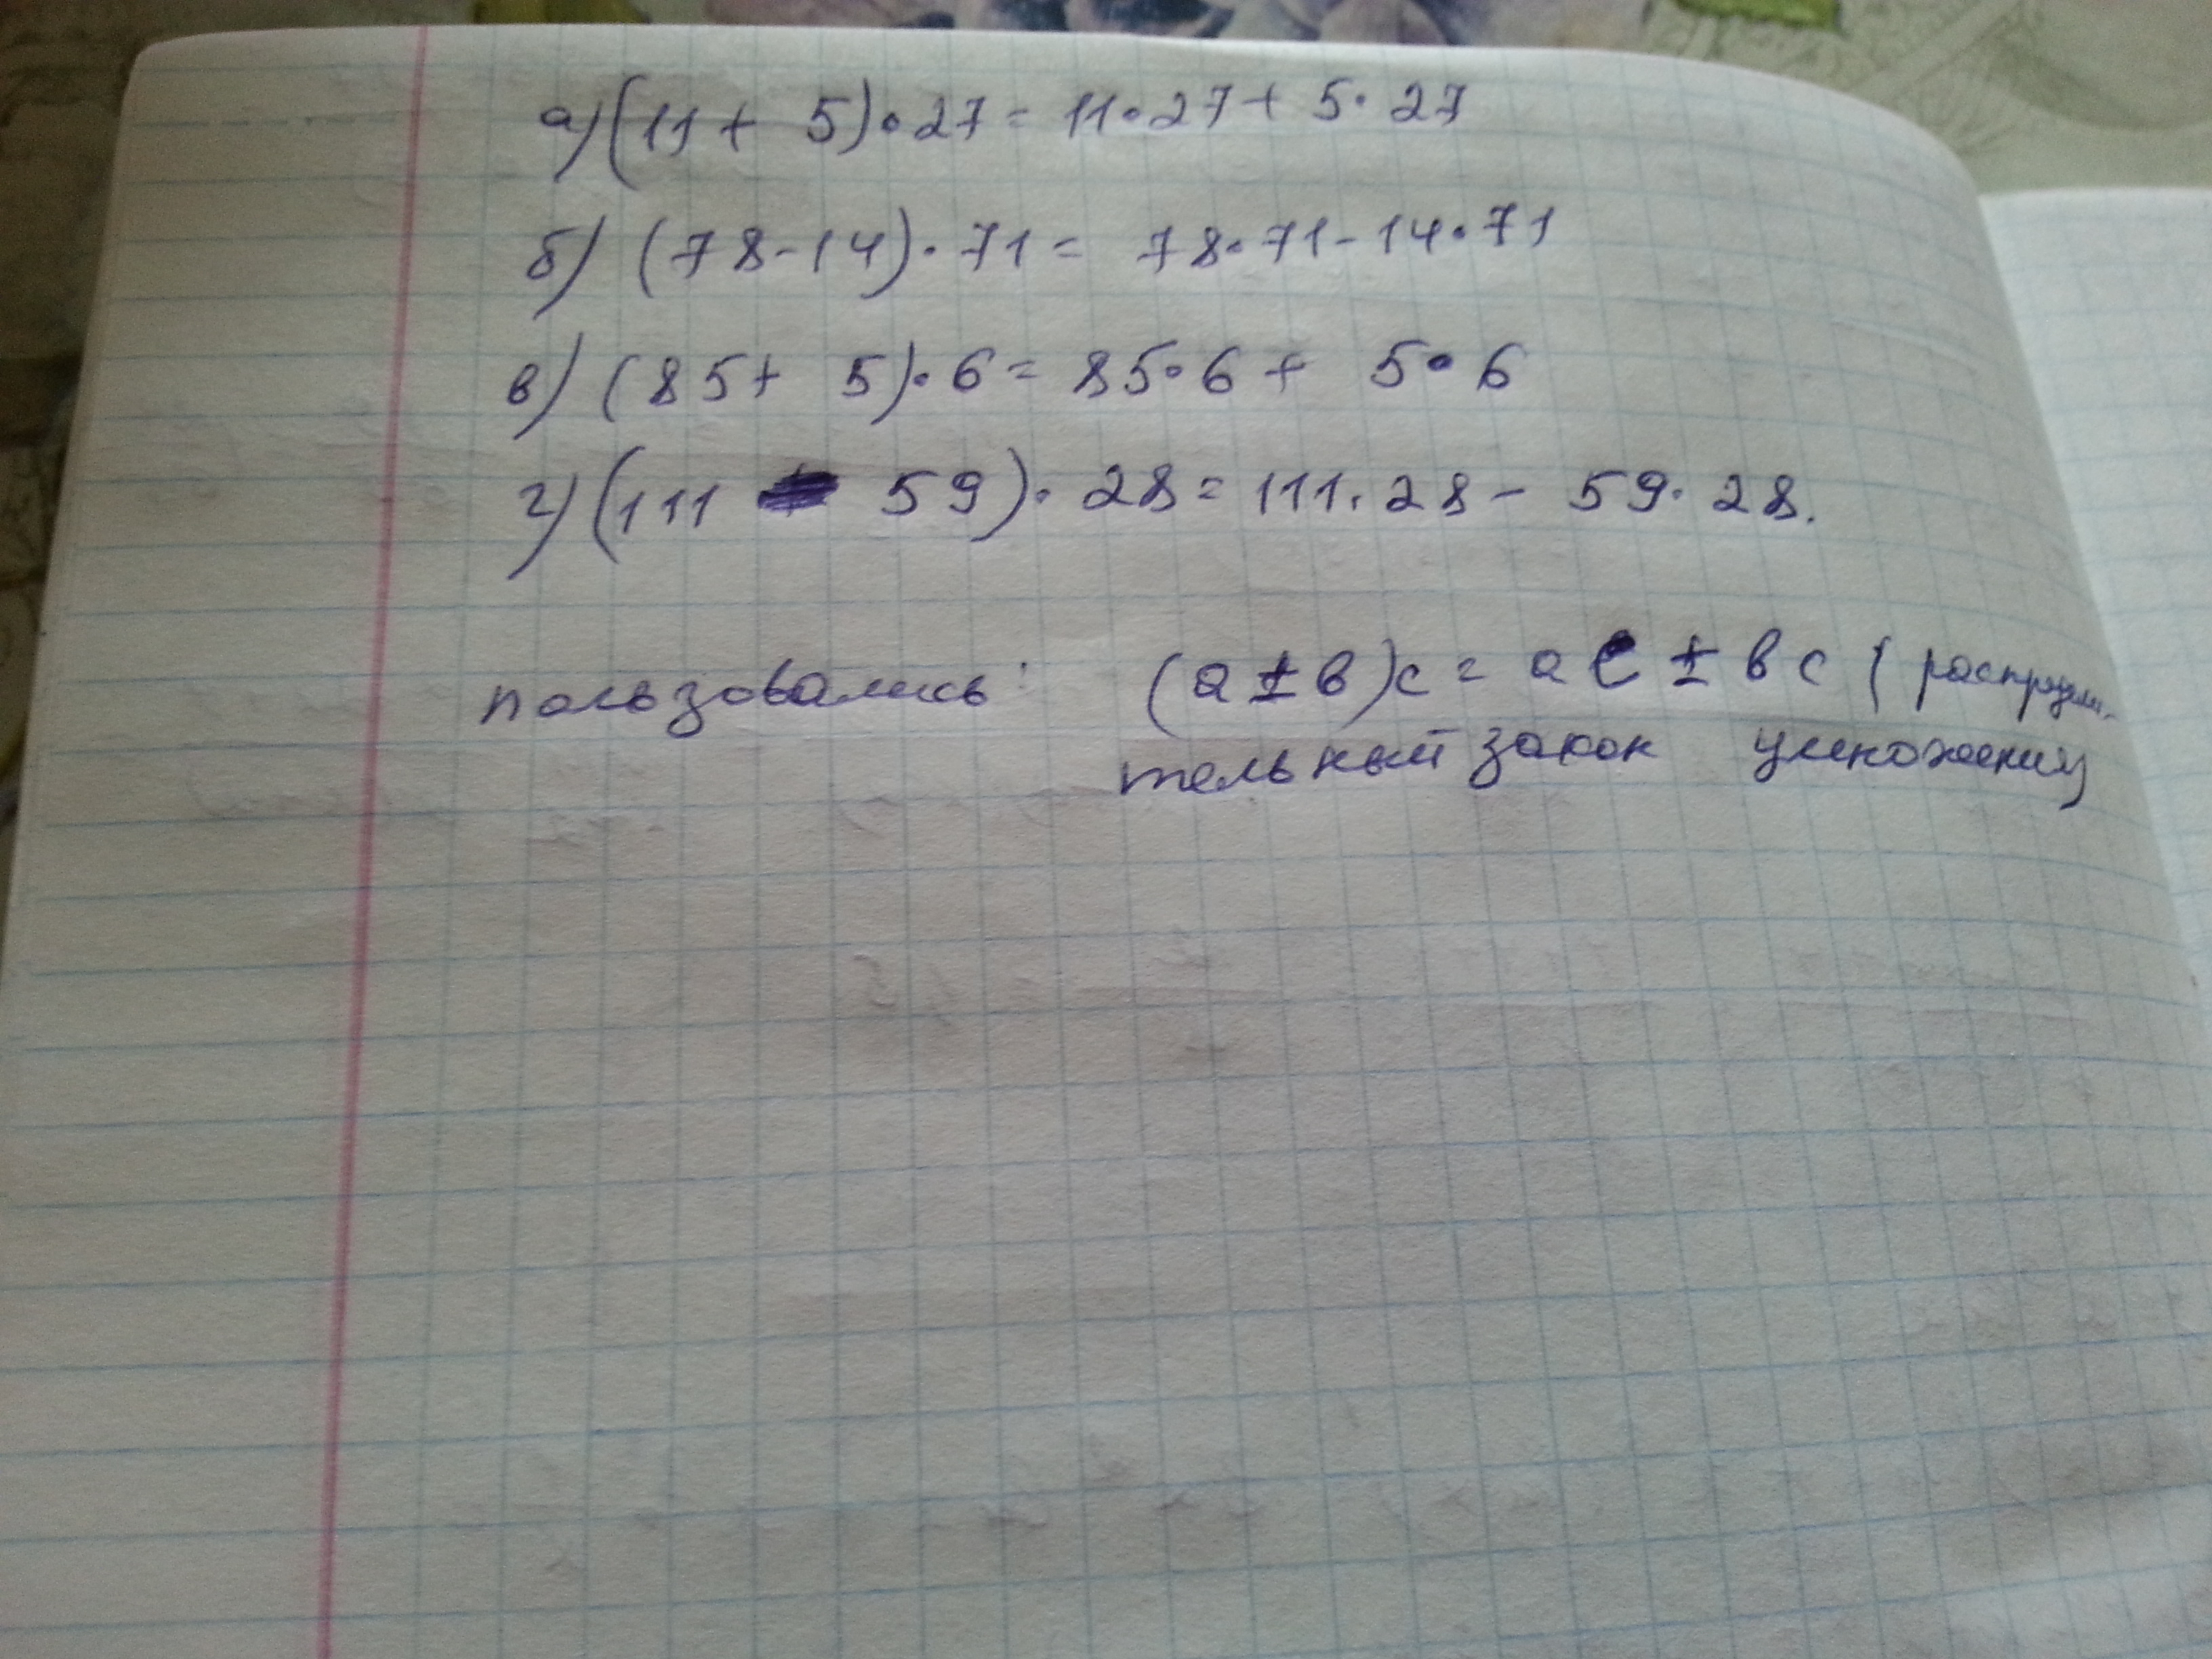 а) (11 + 5) • 27 = 11 • 27 + 5 • 27
б) (78 - 14) • 71 = 78 • 71 - 14 • 71
в) (85 + 5) • 6 = 85 • 6 + 5 • 6
г) (111 - 59) • 28 = 111 • 28 - 59 • 28.
пользовались: (a ± в)c = ac ± вc (распредели-
тельный закон умножения)